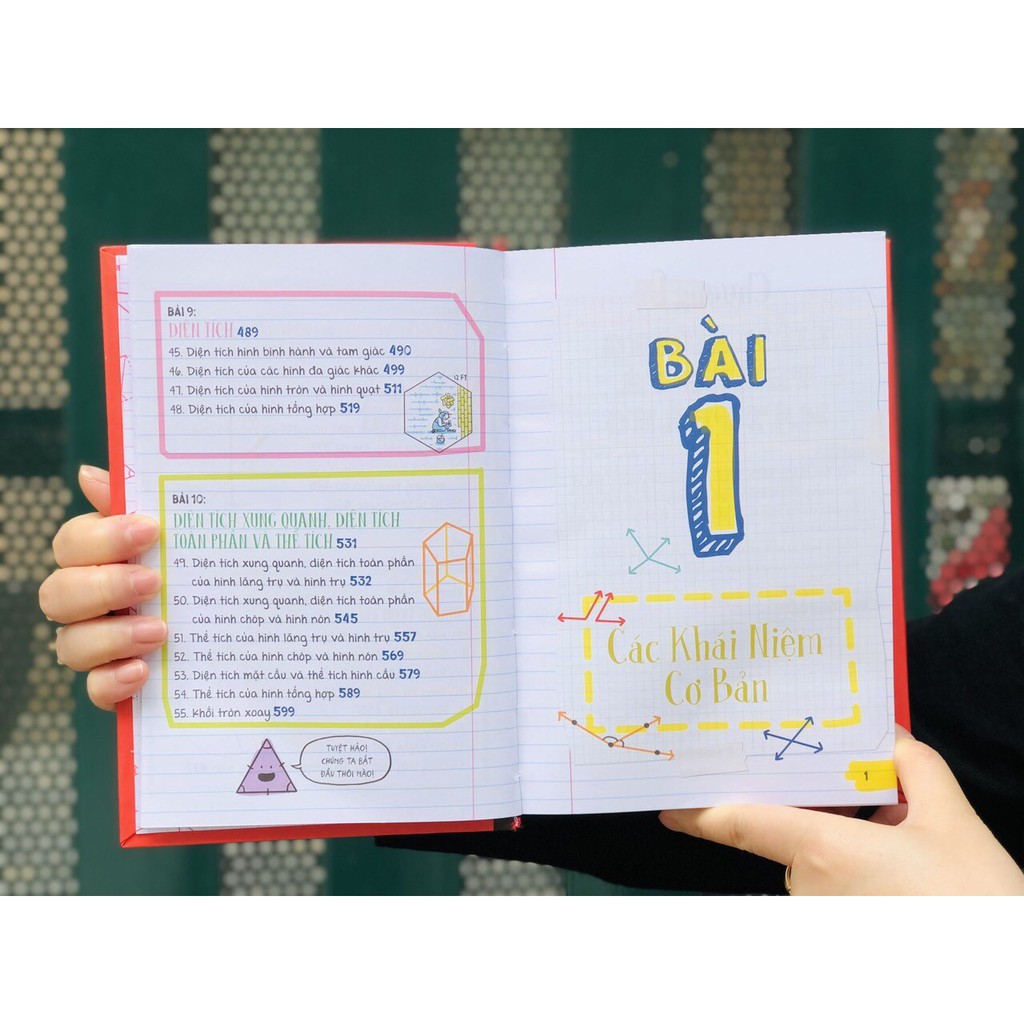 BÀI 9:
DIỆN TÍCH 489
45. Diện tích hình bình hành và tam giác 490
46. Diện tích của các hình đa giác khác 499
47. Diện tích của hình tròn và hình quạt 511
48. Diện tích của hình tổng hợp 519
12 FT
BÀI 10:
DIỆN TÍCH XUNG QUANH, DIỆN TÍCH
TOÀN PHẦN VÀ THỂ TÍCH 531
49. Diện tích xung quanh, diện tích toàn phần
của hình lăng trụ và hình trụ 532
50. Diện tích xung quanh, diện tích toàn phần
của hình chóp và hình nón 545
51. Thể tích của hình lăng trụ và hình trụ 557
52. Thể tích của hình chóp và hình nón 569
53. Diện tích mặt cầu và thể tích hình cầu 579
54. Thể tích của hình tổng hợp 589
55. Khối tròn xoay 599
TUYỆT HẢO!
CHÚNG TA BẮT
ĐẦU THÔI NÀO!
BÀI
1
Các Khái Niệm
Cơ Bản
1